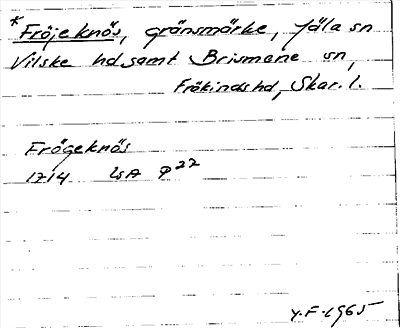 * Fröjeknös, gränsmärke, Jäla sn
Vilske hd samt Brismane sn,
Frökinds hd, Skar. l.
Frögeknös
1714 LSA P22
Y.F. 1965